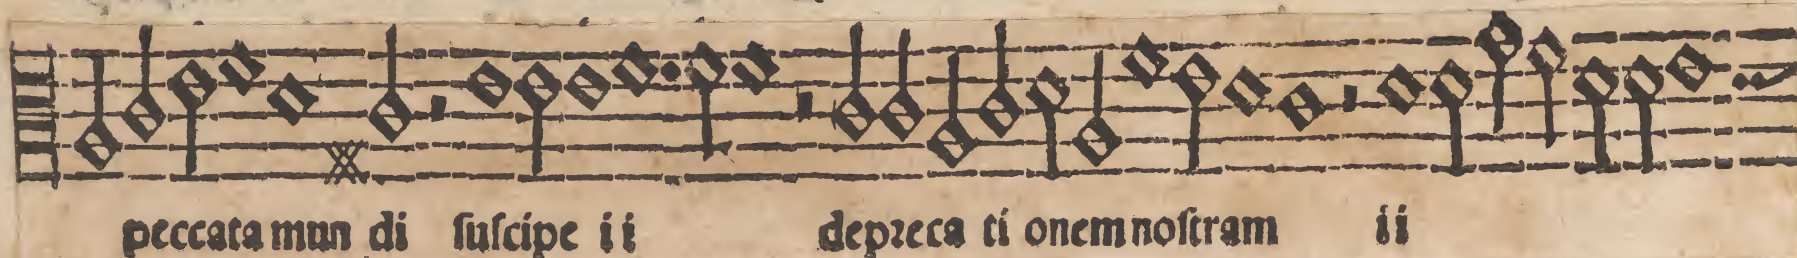 peccata mun di ſuſcipe ii depꝛeca ti onem noſtram ii